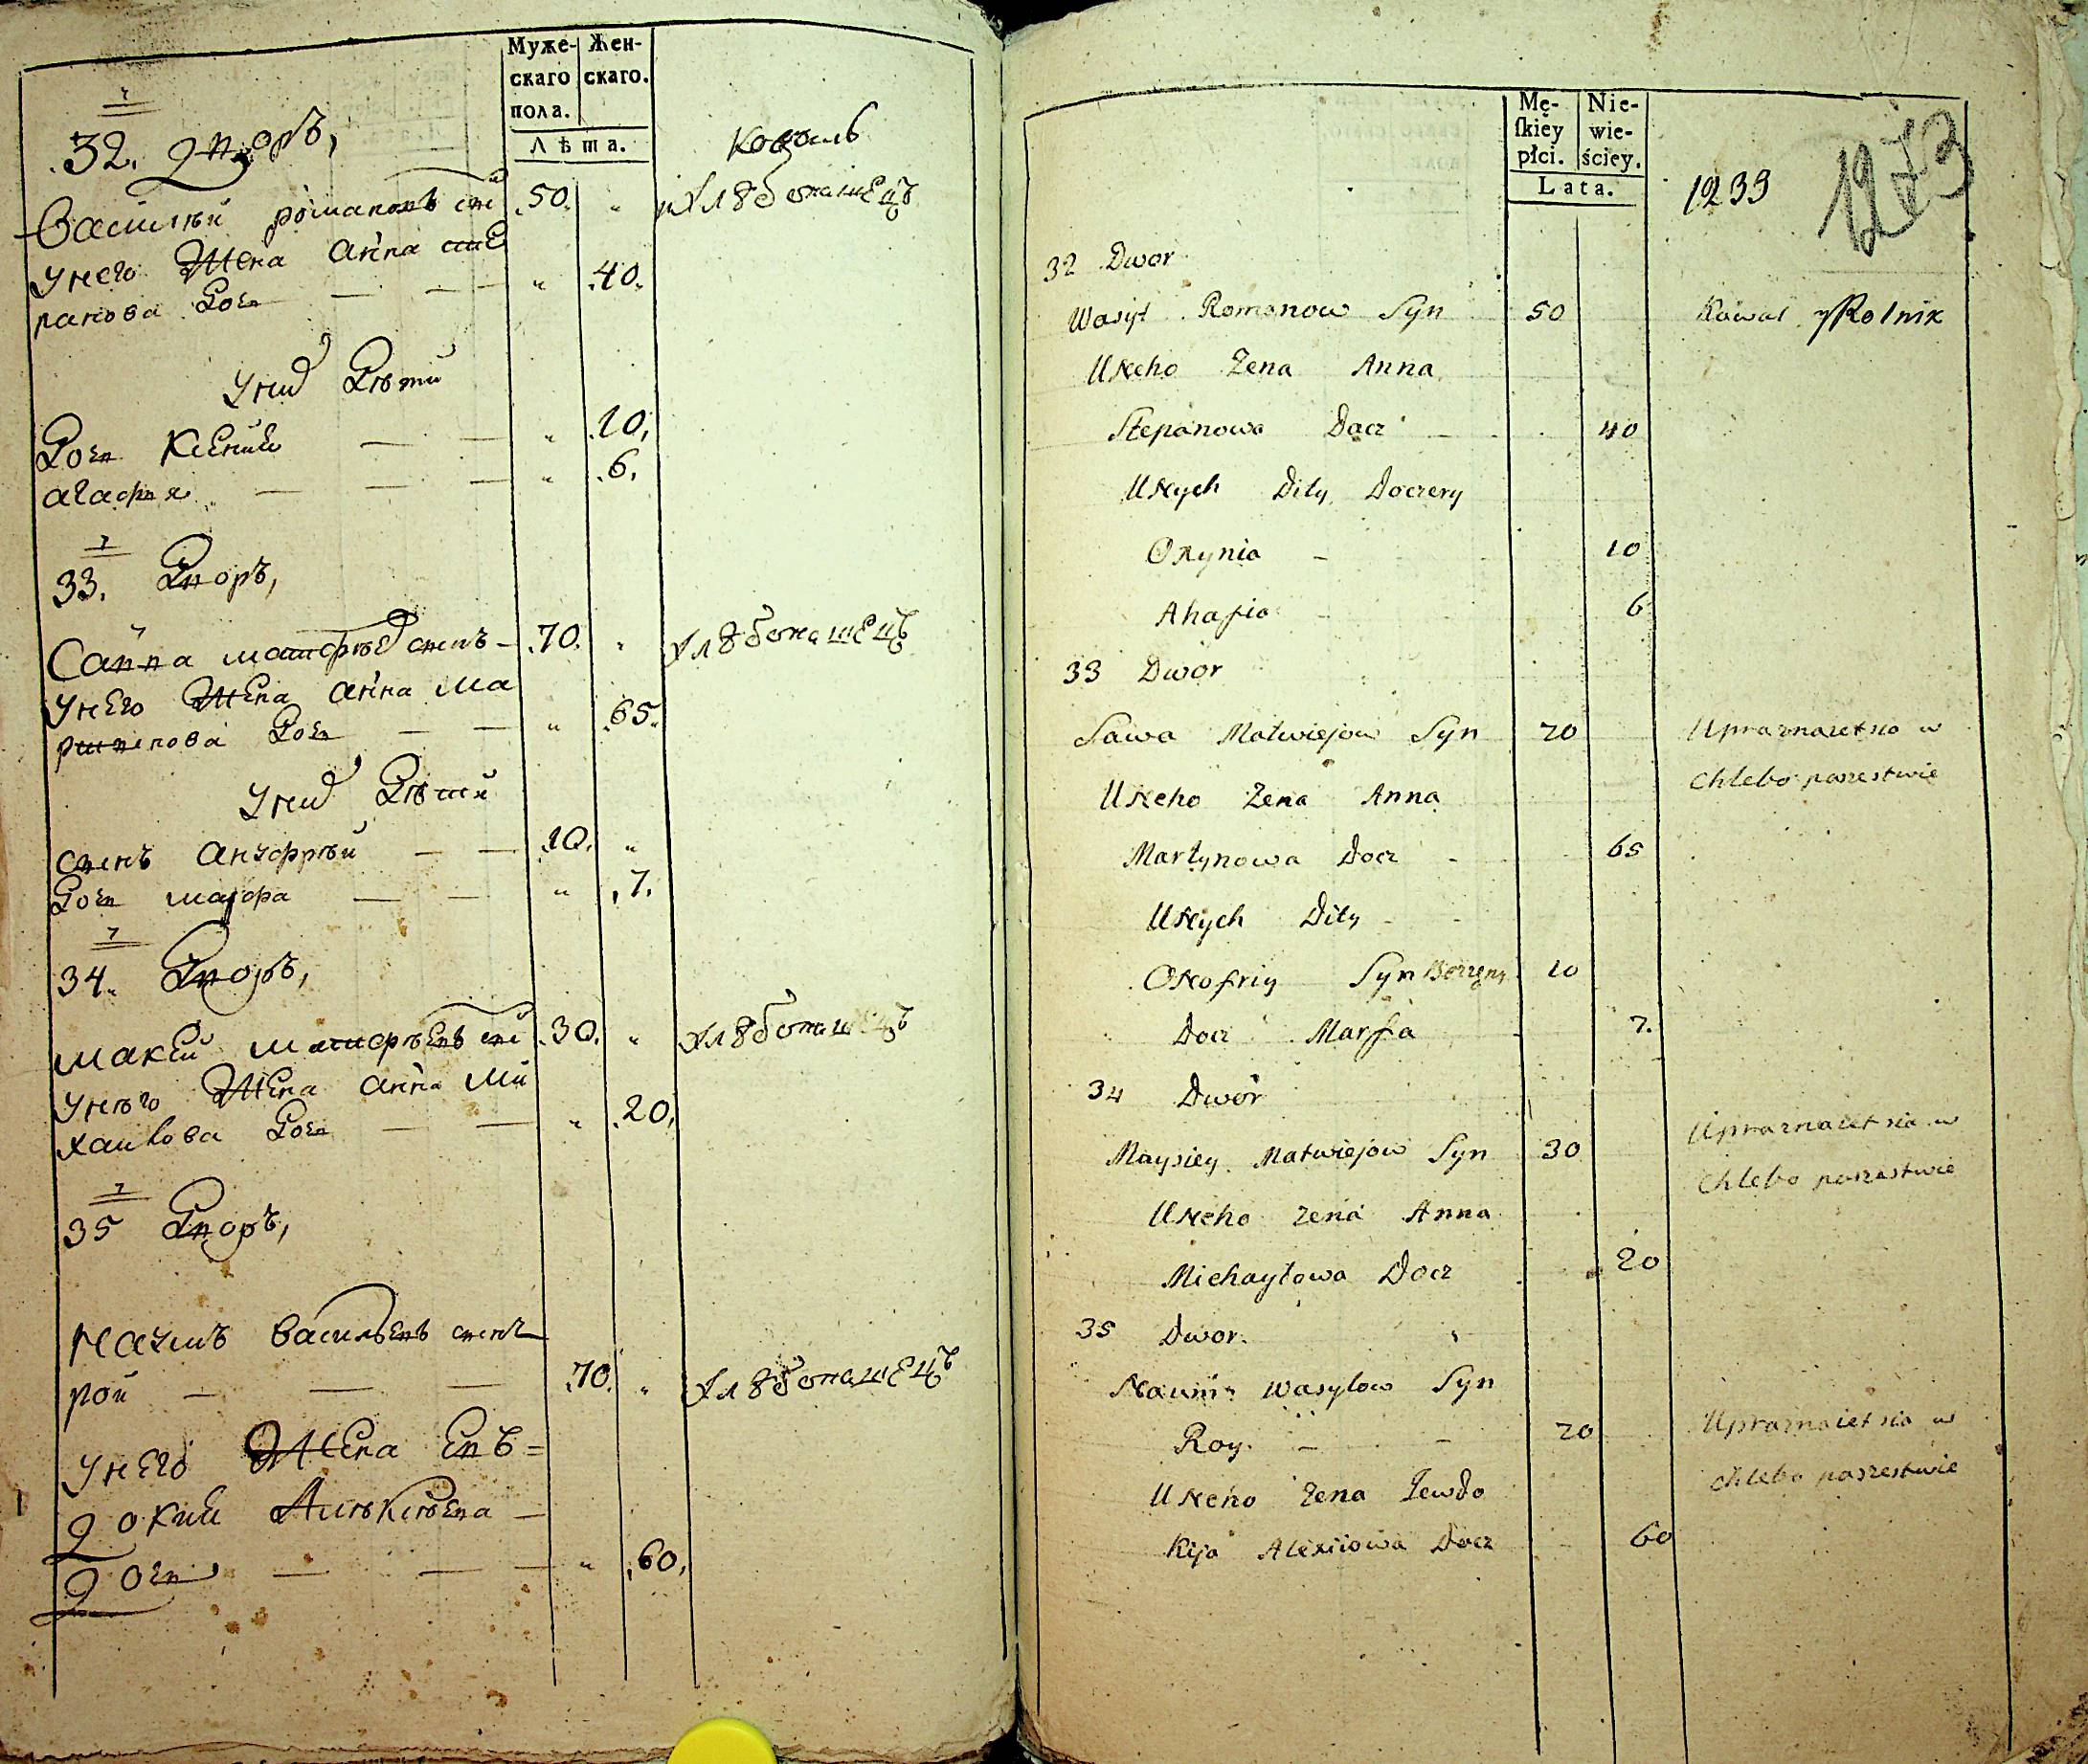 Муже-
скаго
пола.
Жен-
скаго.
Лѣта.
32. дворъ,
Коваль
Василий романовъ сы 50. „ и хлѣбопашецъ
унего Жена анна сте
панова доч — — „ 40.
уних дѣти
доч Ксения — — „ 10,
агафия — — — „ 6.
33. дворъ,
Савва матфѣев сынъ — 70. „ хлѣбопашецъ
унего Жена анна Ма
ртинова доч — — „ 65.
уних дѣти
сынъ ануфрѣй — — 10. „
доч марфа — — „ 7.
34. дворъ,
мойсий матфѣевъ сы 30. „ хлѣбопашецъ
унѣго Жена анна Ми
хайлова доч — — „ 20,
35 дворъ,
Наумъ васильевъ сынъ
рой — — — 70. „ хлѣбопашецъ
унего Жена Евъ=
докия Алѣксѣева —
доч — — — „ 60,
Mę-
ſkiéy
płci.
Nie-
wie-
ściey.
Lata.
1239 1273
32 Dwor
Wasyl Romanow Syn 50 Kowal y Rolnik
Uneho Żena Anna
Stepanowa Docz — 40
Unych Dity Doczery
Oxynia — 10
Ahafia 6
33 Dwor
Sawa Matwiejow Syn 70 Upraznaietsia w
chlebo paszestwie
Uneho Zena Anna
Martynowa Docz - 65
Unych Dity -
Onofriy Syn 10
Docz Marfa 7.
34 Dwor
Maysiey Matwiejow Syn 30 Upraznaiet sia w
chlebo paszestwie
Uneho zena Anna
Michayłowa Docz 20
35 Dwor.
Naum Wasylow Syn
Roy. — — 70 Upraznaiet sia w
chlebo paszestwie
Uneho Zena Jewdo
kija Alexiiowa Docz 60